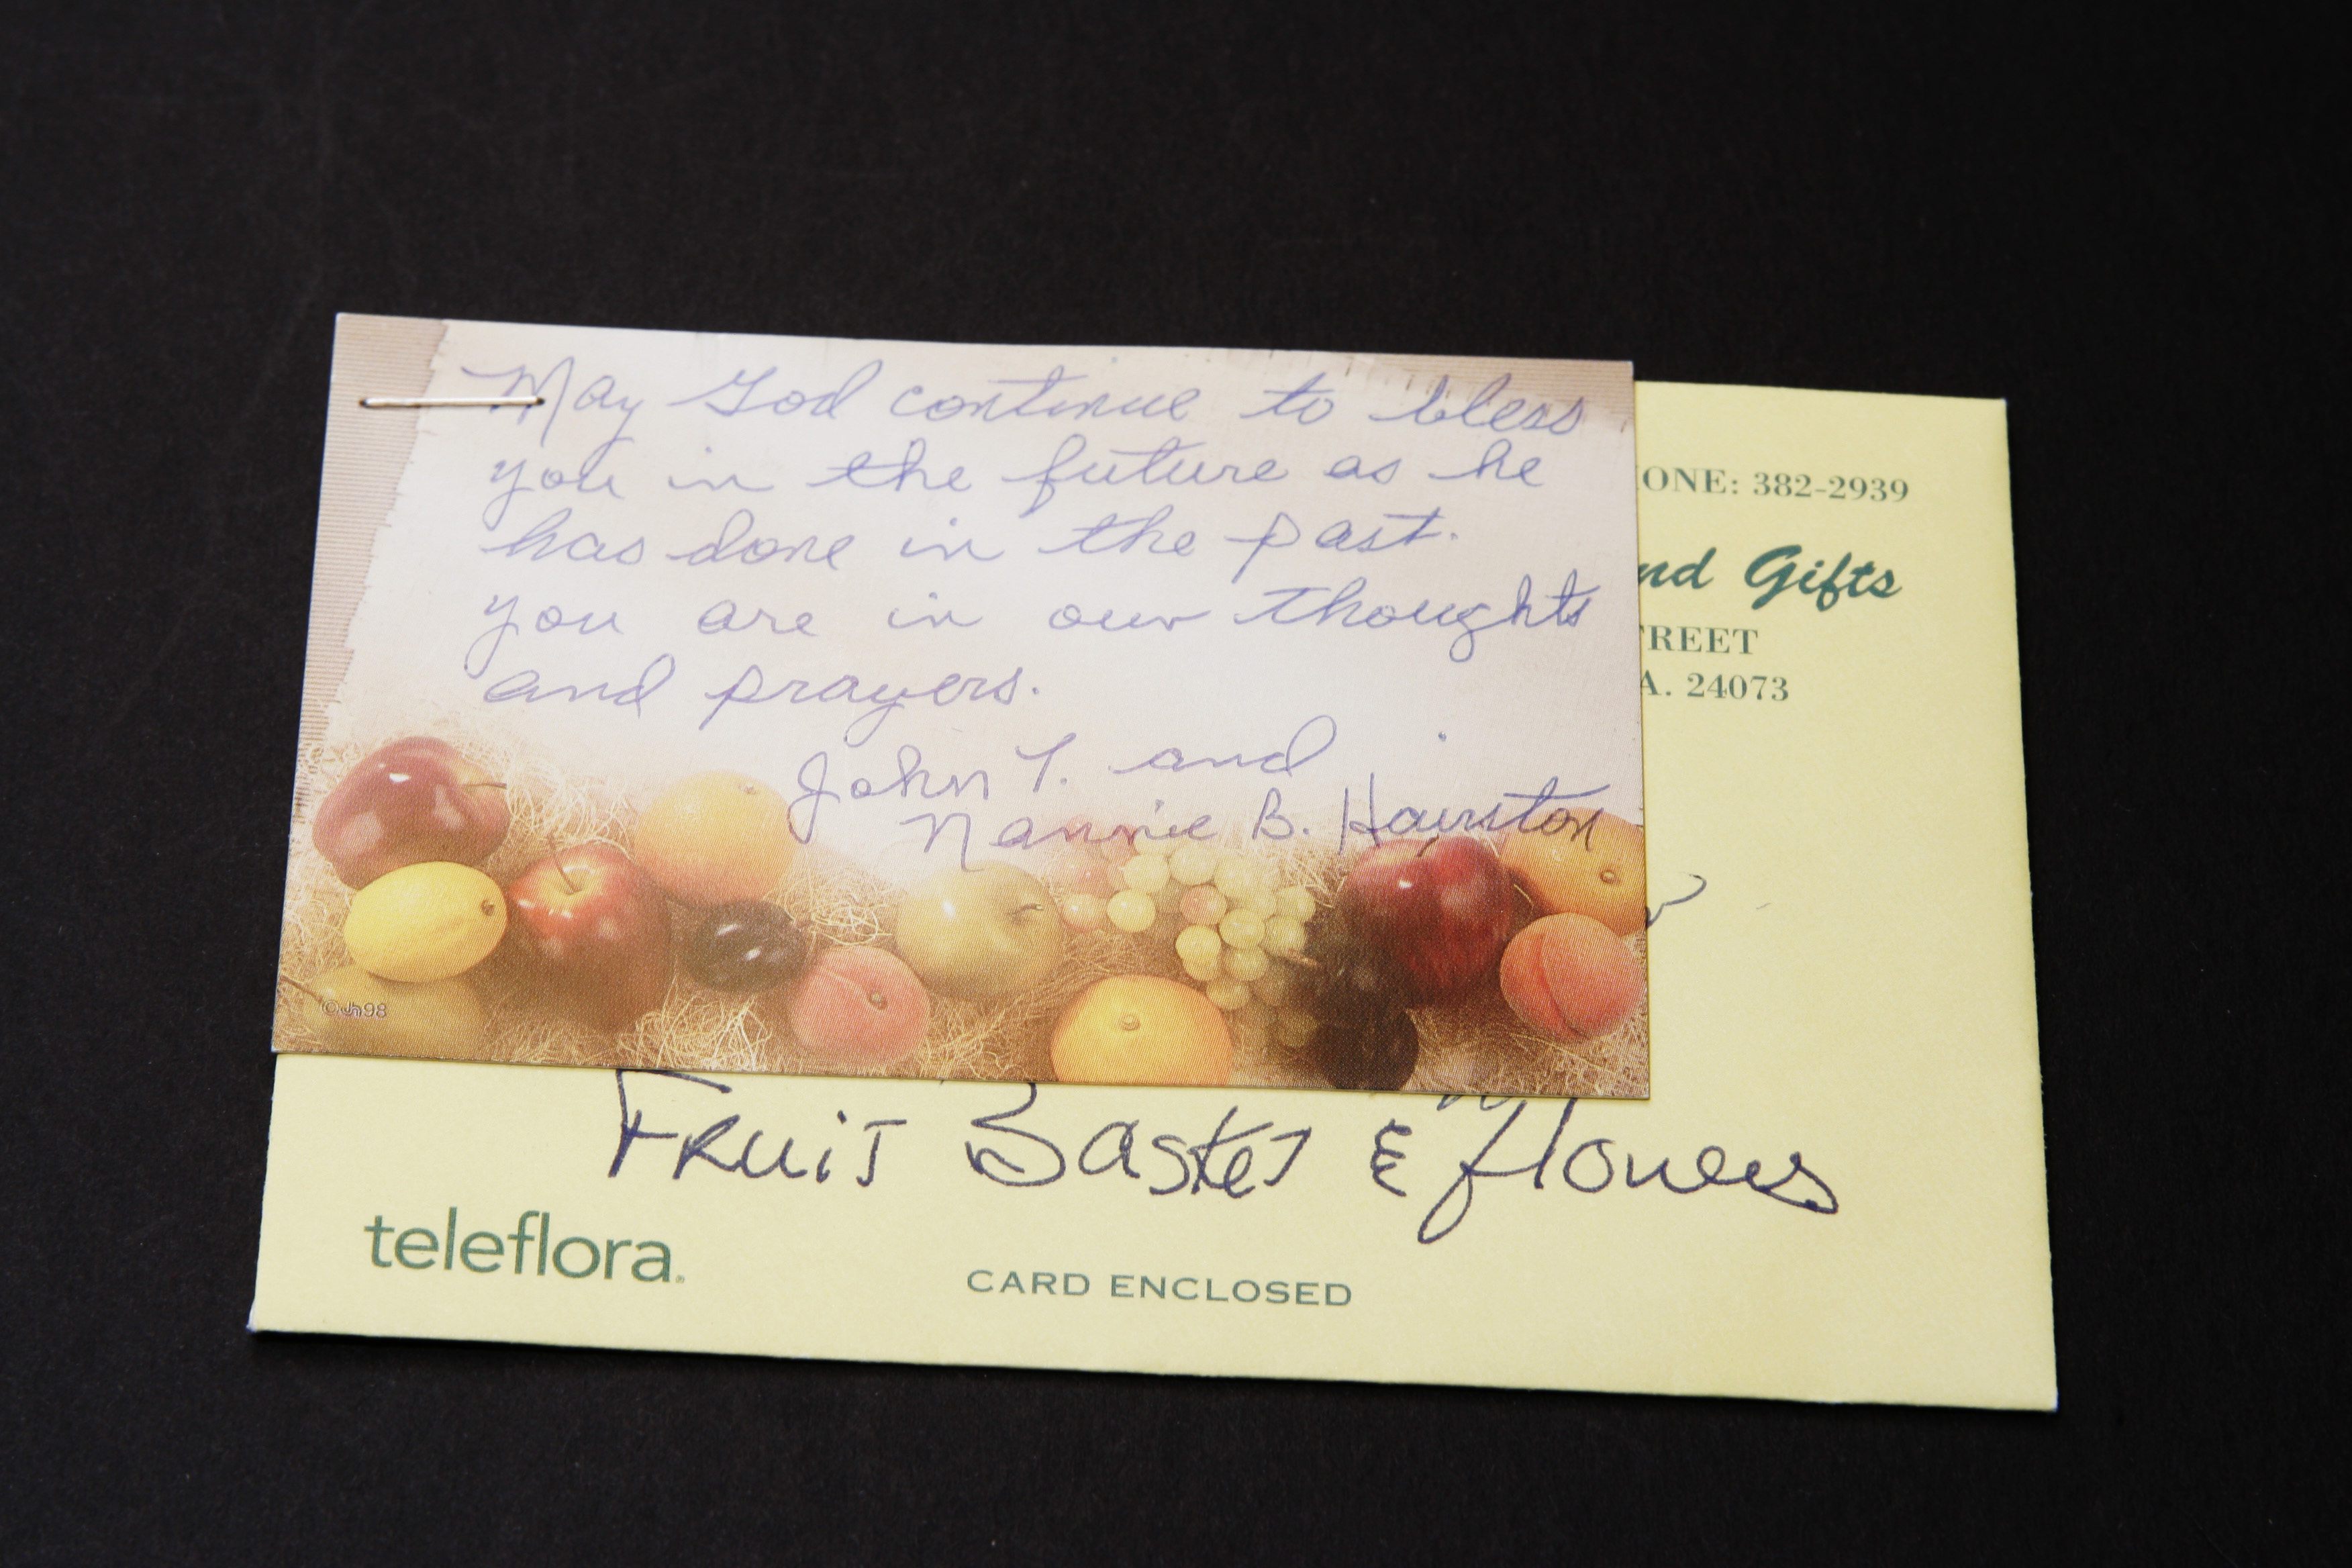 May God continue to bless
you in the future as he
has done in the past.
you are in our thoughts
and prayers.
John T. and
Nannie B. Hairston
©jh98
ONE: 382-2939
nd Gifts
REET
A. 24073
Fruit Basket & flowers
teleflora.
CARD ENCLOSED